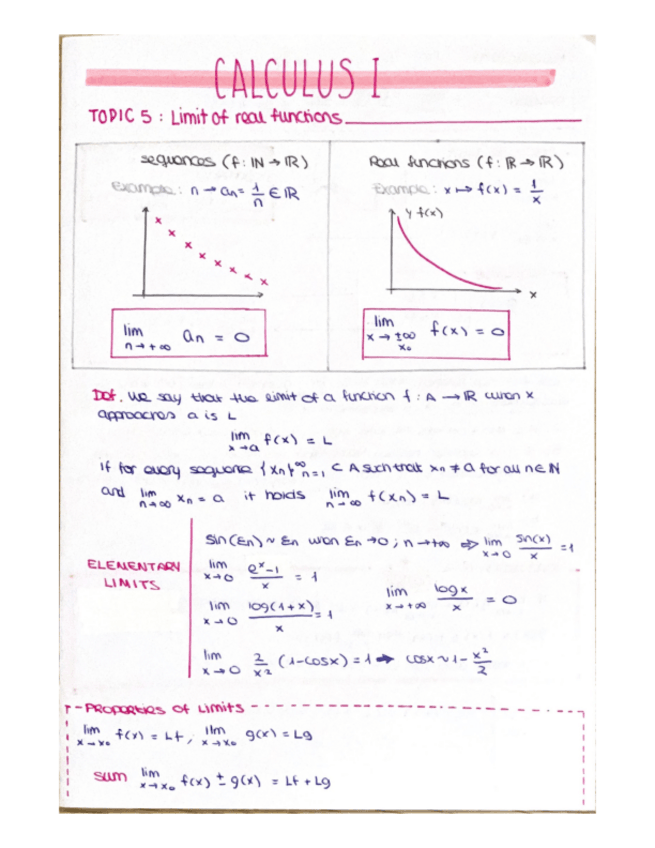 CALCULUS I
TOPIC 5 : Limit of real functions
sequences (f: ℕ → ℝ)
Example: n → aₙ = 1/n ∈ ℝ
lim n→+∞ aₙ = 0
Real functions (f: ℝ → ℝ)
Example: x ↦ f(x) = 1/x
y f(x)
x
lim x→±∞ x₀ f(x) = 0
Def. We say that the limit of a function f: A → ℝ when x
approaches a is L
lim x→a f(x) = L
if for every sequence {xₙ}^∞ₙ₌₁ ⊂ A such that xₙ ≠ a for all n∈ℕ
and lim n→∞ xₙ = a it holds lim n→∞ f(xₙ) = L
ELEMENTARY
LIMITS
sin(εₙ) ~ εₙ when εₙ→0 ; n→+∞ ⇒ lim x→0 sin(x)/x = 1
lim x→0 (eˣ-1)/x = 1
lim x→0 log(1+x)/x = 1
lim x→+∞ log x/x = 0
lim x→0 2/x² (1-cosx) = 1 → cosx ~ 1 - x²/2
PROPERTIES OF LIMITS
lim x→x₀ f(x) = Lf ; lim x→x₀ g(x) = Lg
sum lim x→x₀ f(x) ± g(x) = Lf + Lg